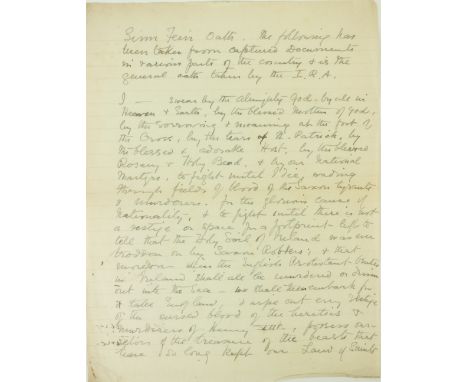 Sinn Fein Oath. The following has
been taken from captured Documents
in various parts of the country & is the
general oath taken by the I.R.A.
I — swear by the Almighty God - by all in
Heaven & Earth, by the blessed Mother of God,
by the sorrowing & mourning at the foot of
the Cross, by the tears of St. Patrick, by
the blessed & adorable Host, by the blessed
Rosary & Holy Bead, & by our National
Martyrs, to fight until I die, wading
through fields of blood of the Saxon tyrants
& Murderers. for the glorious cause of
Nationality, & to fight until there is not
a vestige or space for a footprint left to
tell that the Holy Soil of Ireland was ever
trodden on by Saxon Robbers, & that
moreover - when the English Protestant
in Ireland shall all be murdered or driven
out into the Sea - we shall then embark for
& take England, & wipe out every Vestige
of the cursed blood of the heretics &
murderers of Henry
of the treasure of the beasts that
have so long kept our Land of Saints